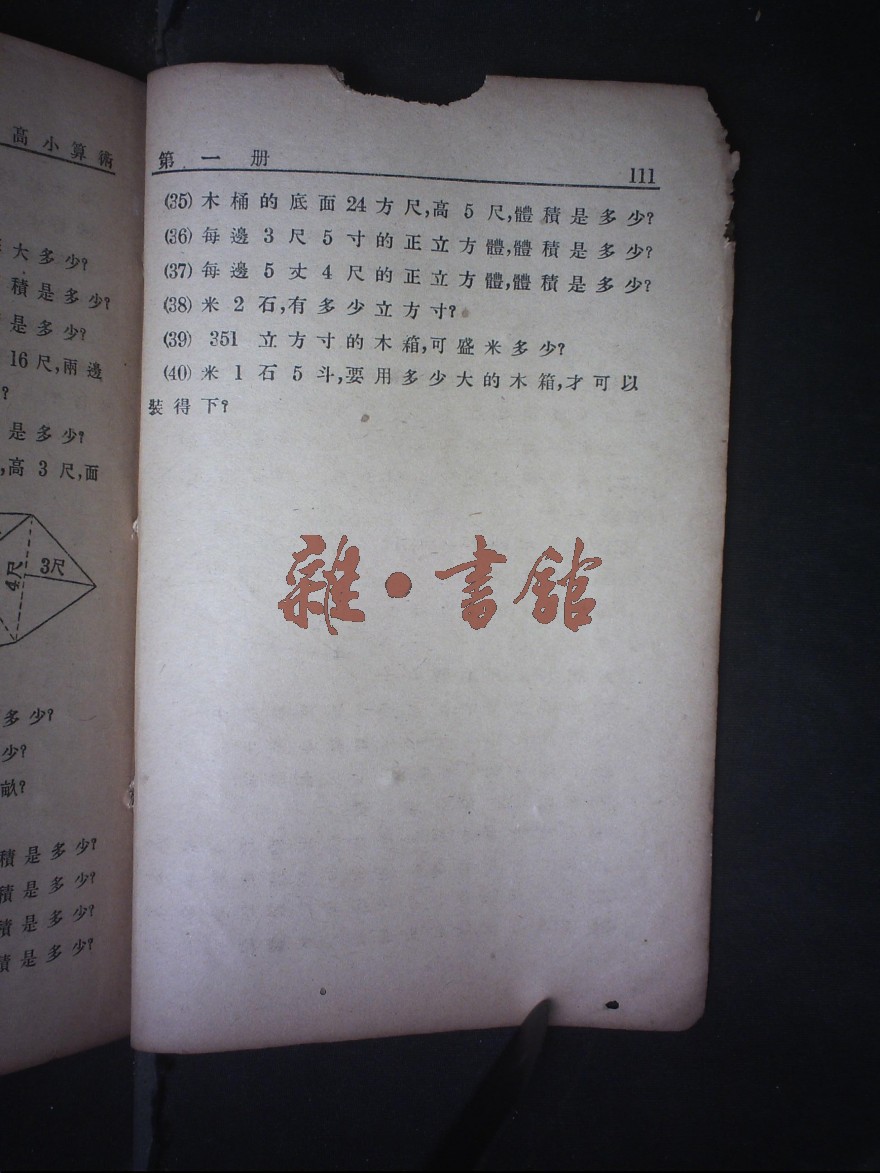 高小算術
大多少?
積是多少?
是多少?
16尺,兩邊
?
是多少?
,高3尺,面
4尺
3尺
多少?
少?
畝?
積是多少?
積是多少?
積是多少?
積是多少?
第一册 111
(35) 木桶的底面24方尺,高5尺,體積是多少?
(36) 每邊3尺5寸的正立方體,體積是多少?
(37) 每邊5丈4尺的正立方體,體積是多少?
(38) 米2石,有多少立方寸?
(39) 351立方寸的木箱,可盛米多少?
(40) 米1石5斗,要用多少大的木箱,才可以
裝得下?
雜·書舘